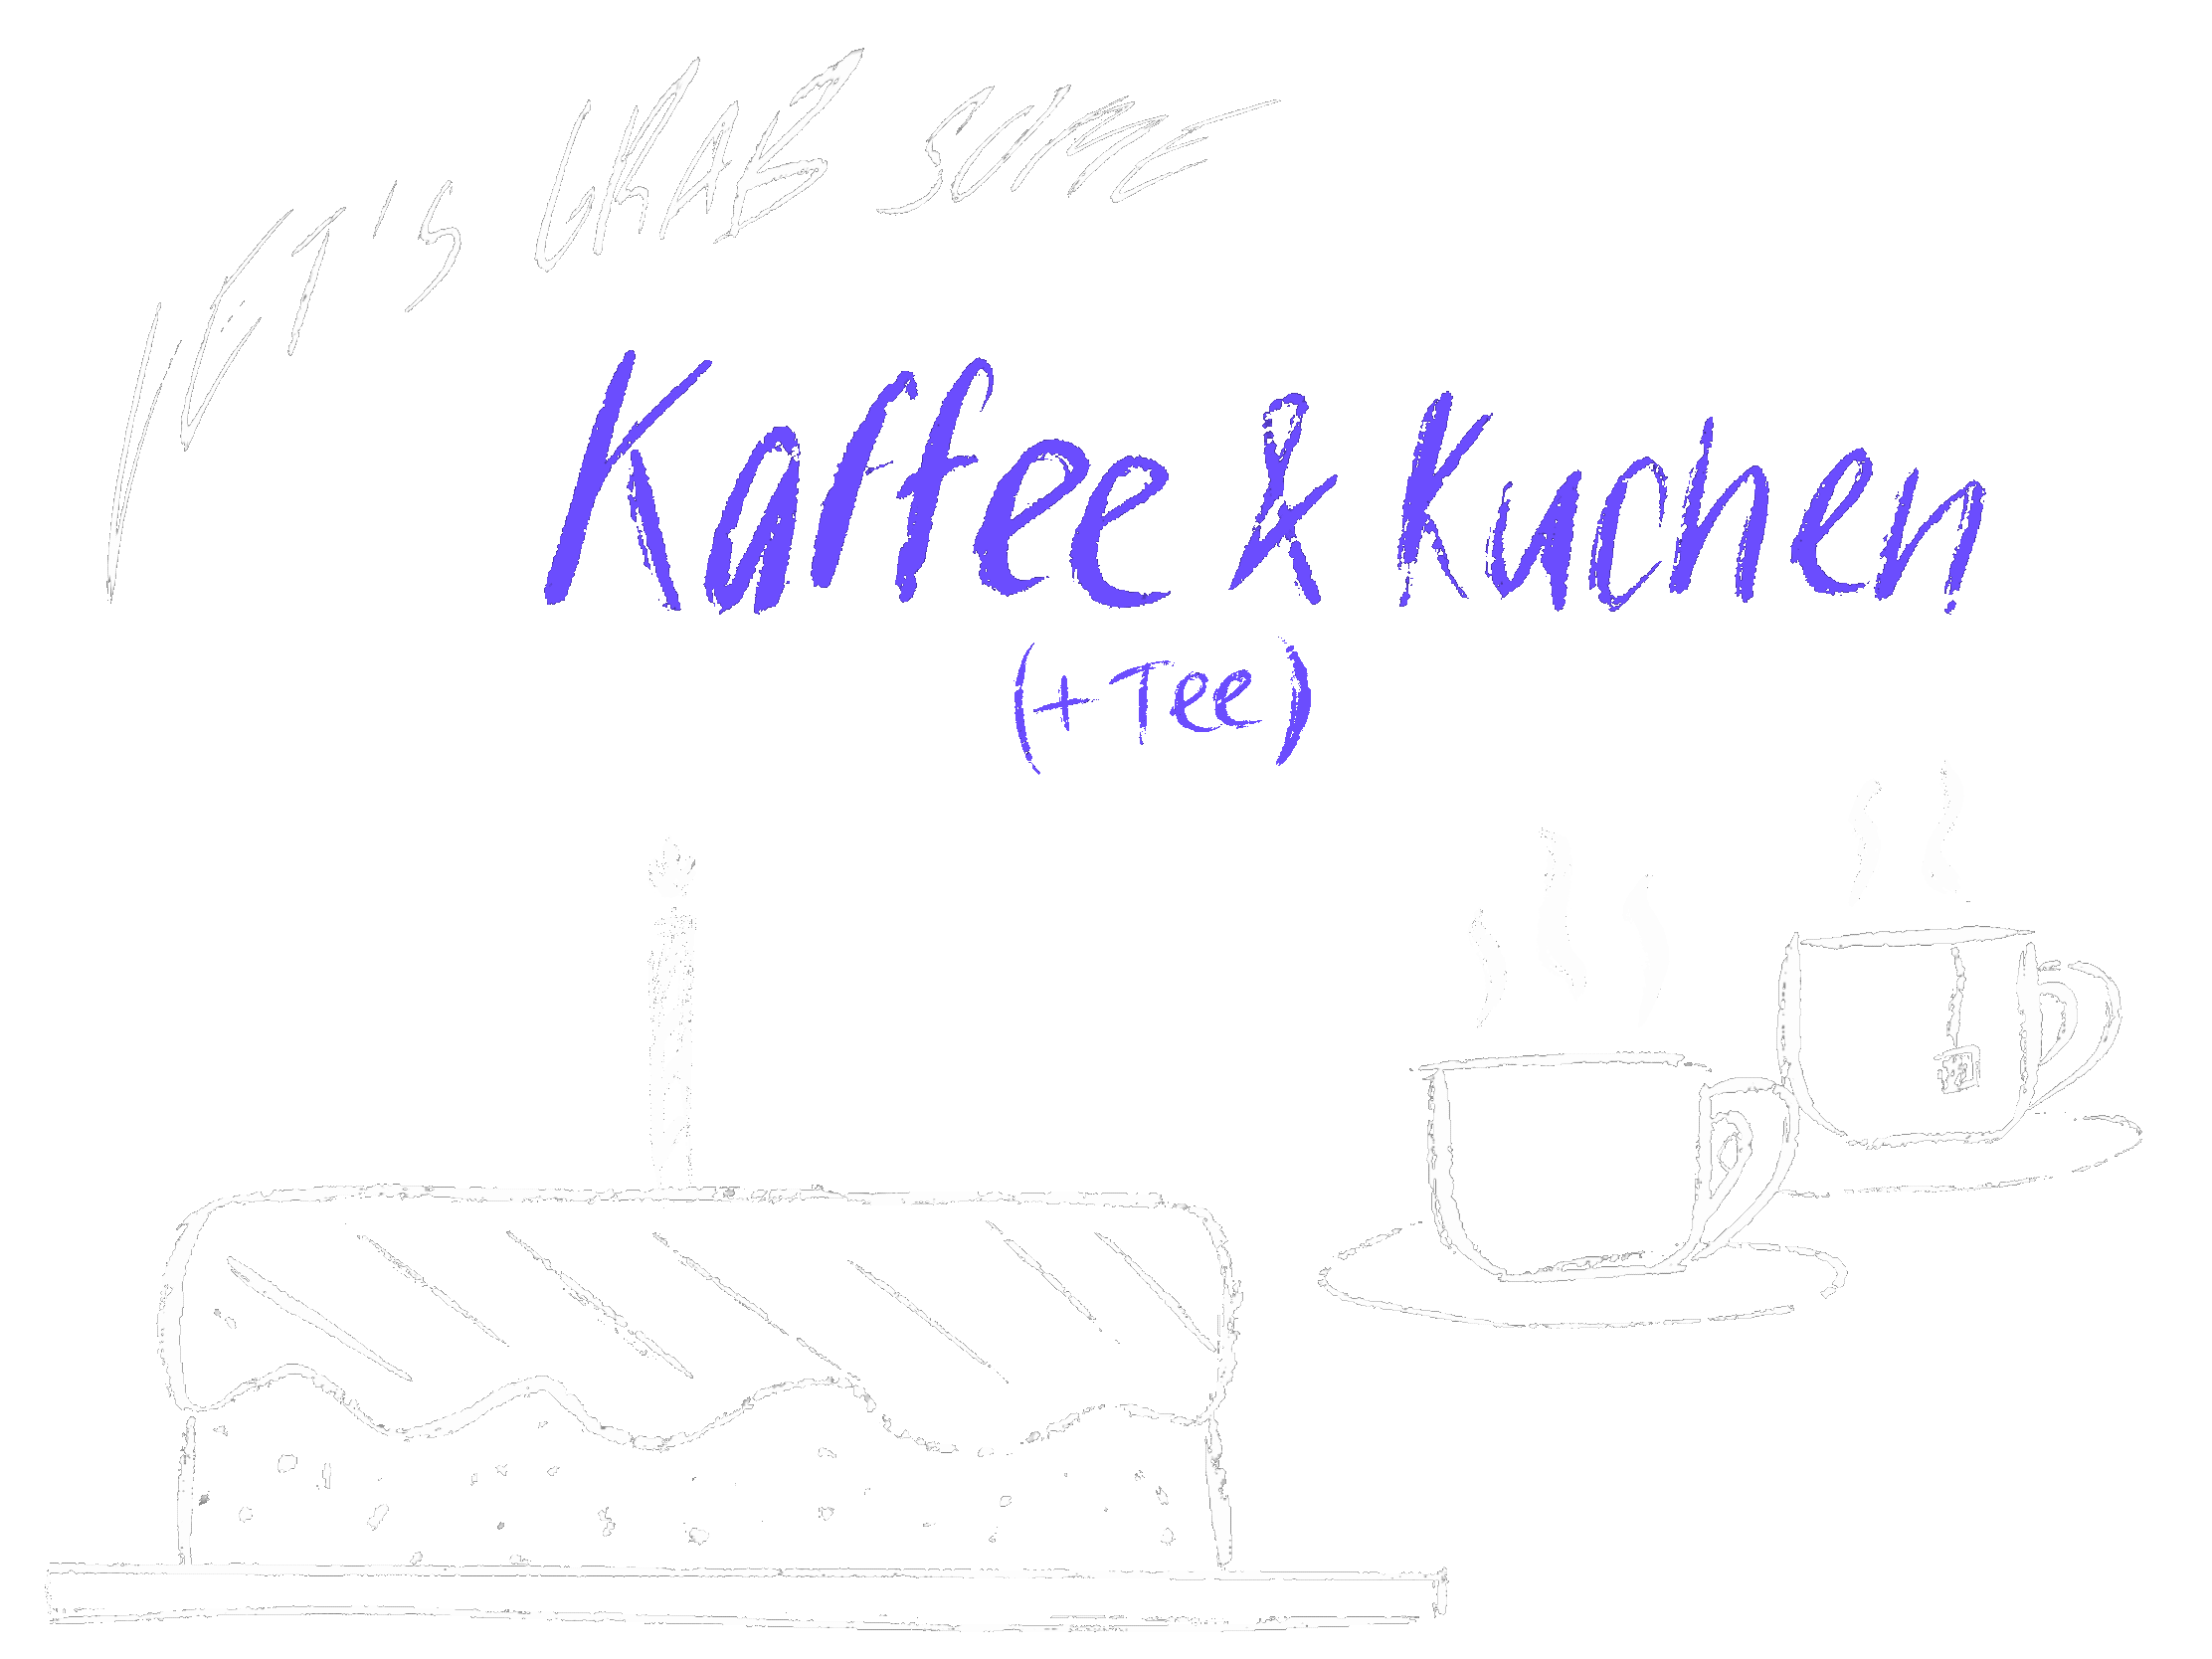 LET'S GRAB SOME
Kaffee & Kuchen
(+ Tee)